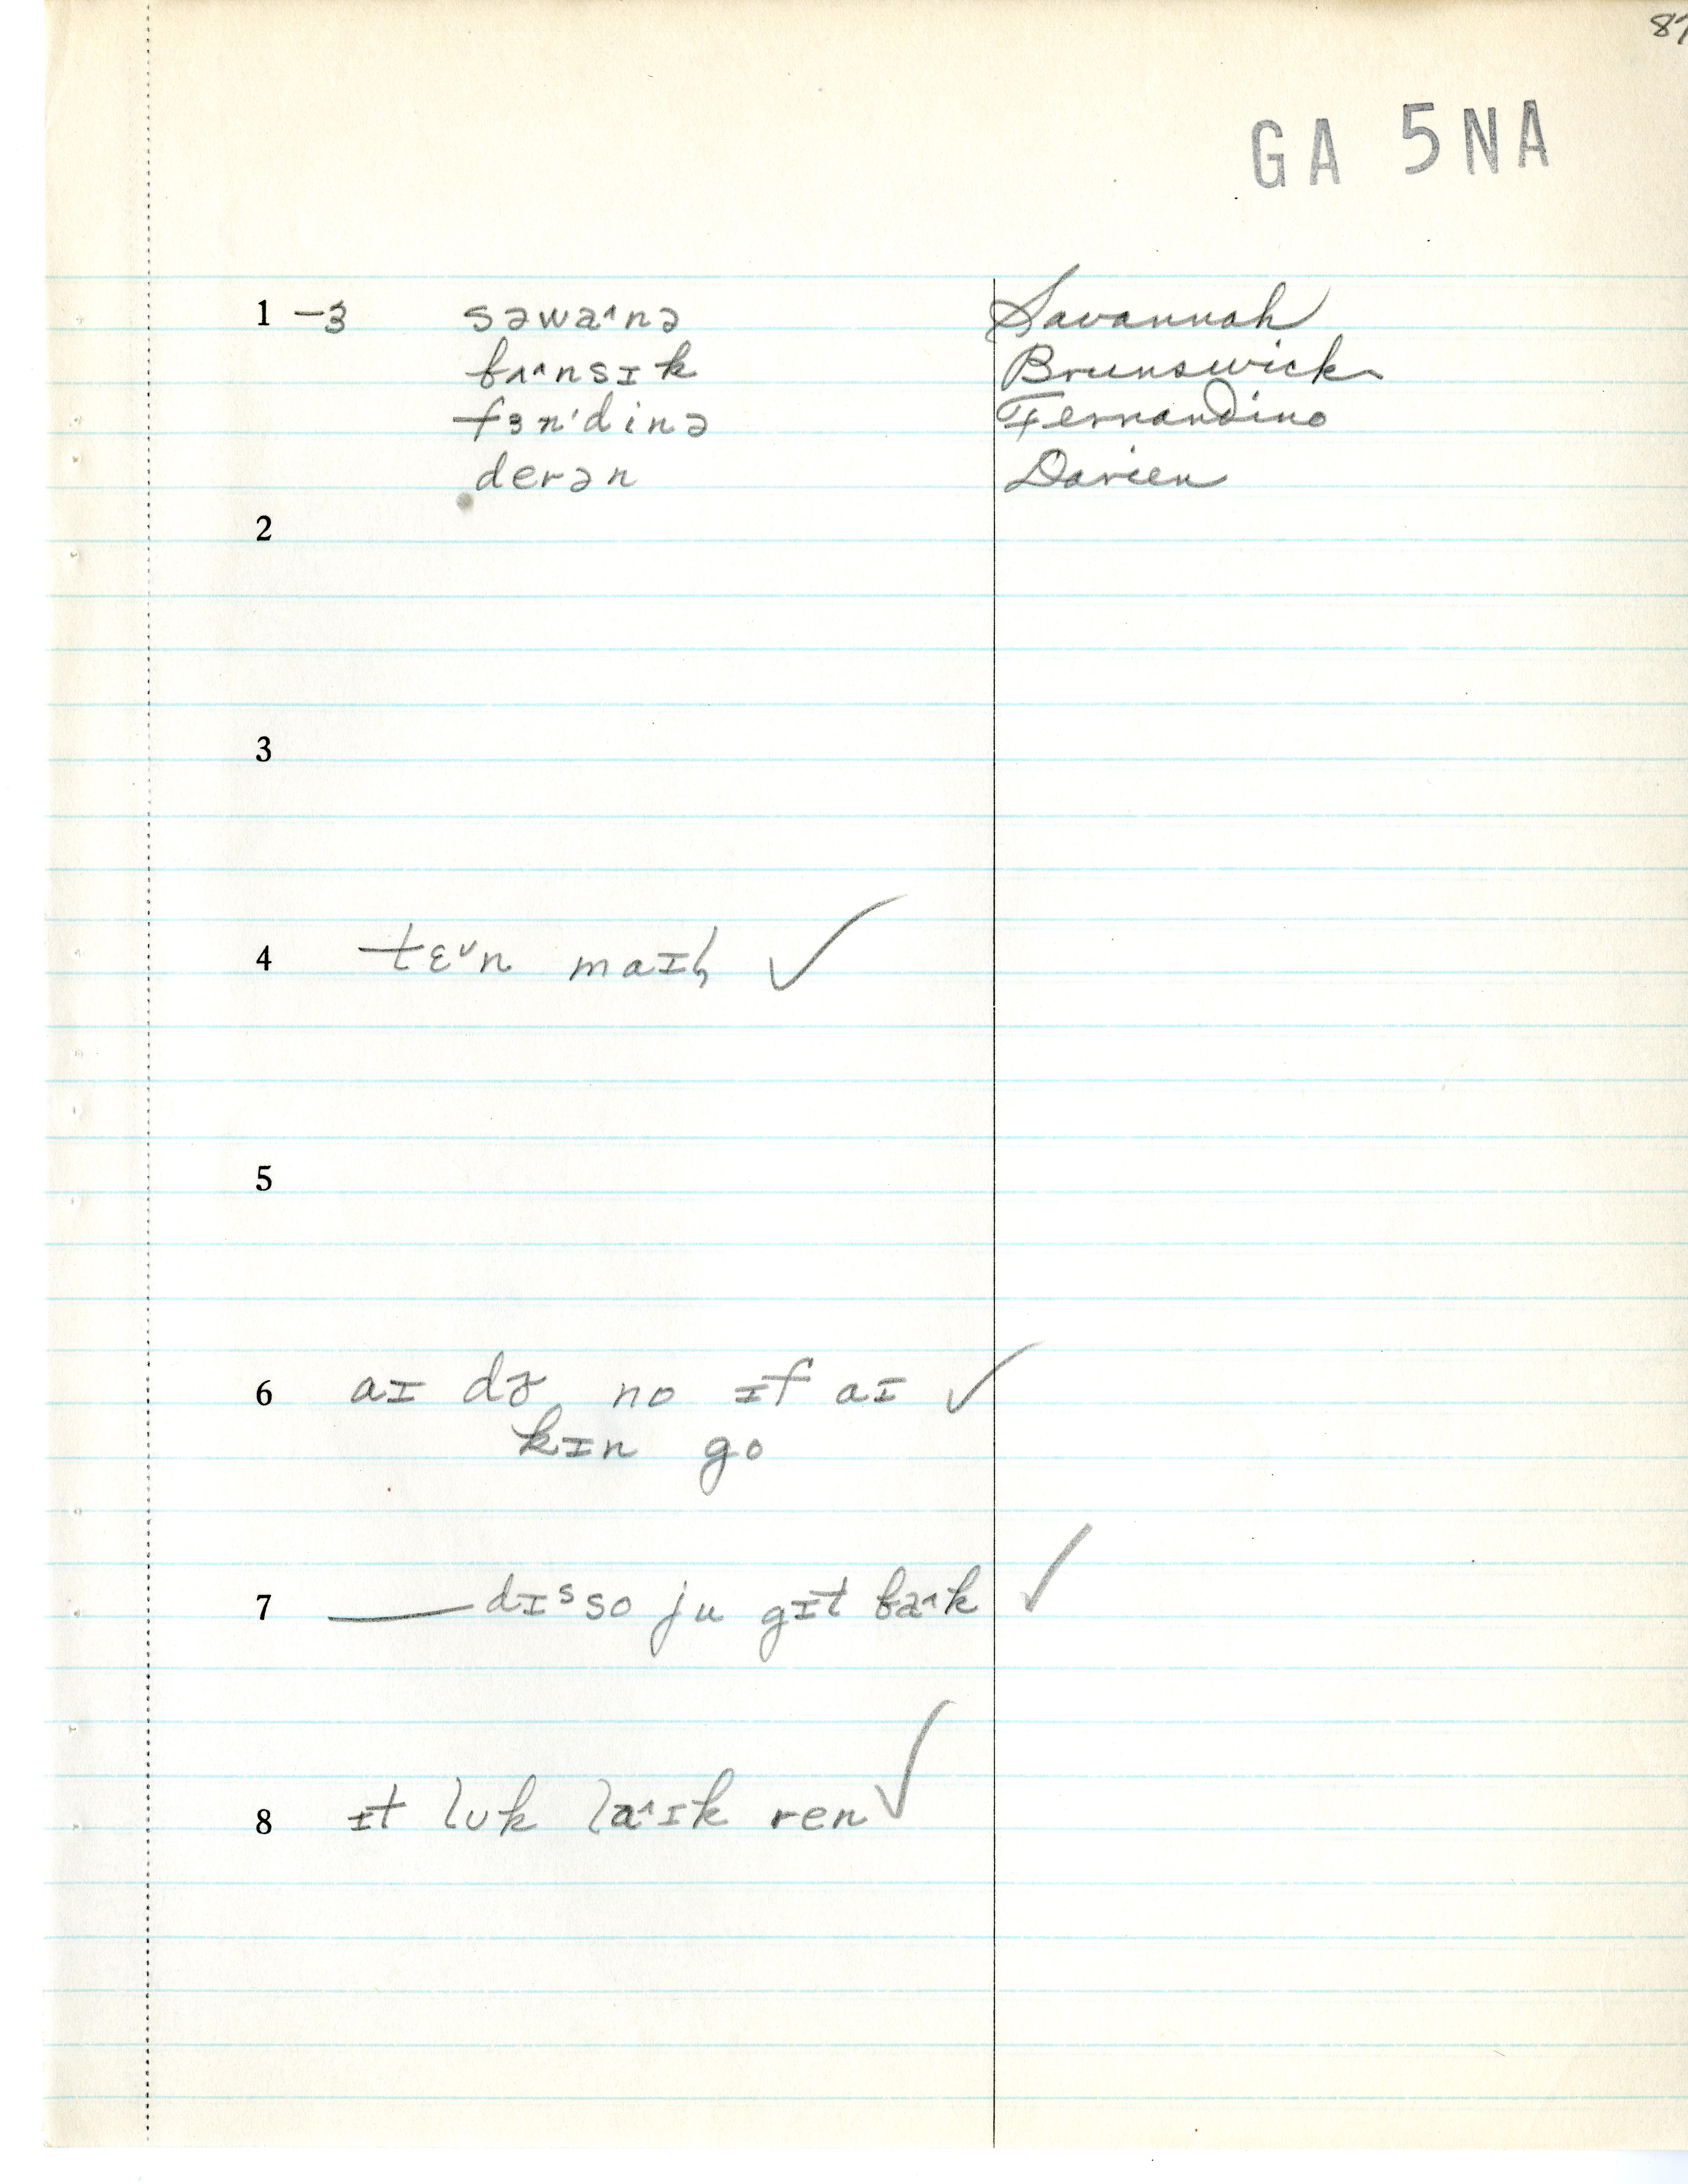 87
GA 5NA
1 –3 səwa˄nə Savannah
bʌ˄nsɪk Brunswick
fɜn'dinə Fernandino
derən Darien
2
3
4 tɛ˅n maɪ ✓
5
6 aɪ no ɪf aɪ ✓
kɪn go
7 —— dɪˢso ju gɪt ba˄k ✓
8 ɪt lʊk la˄ɪk ren ✓